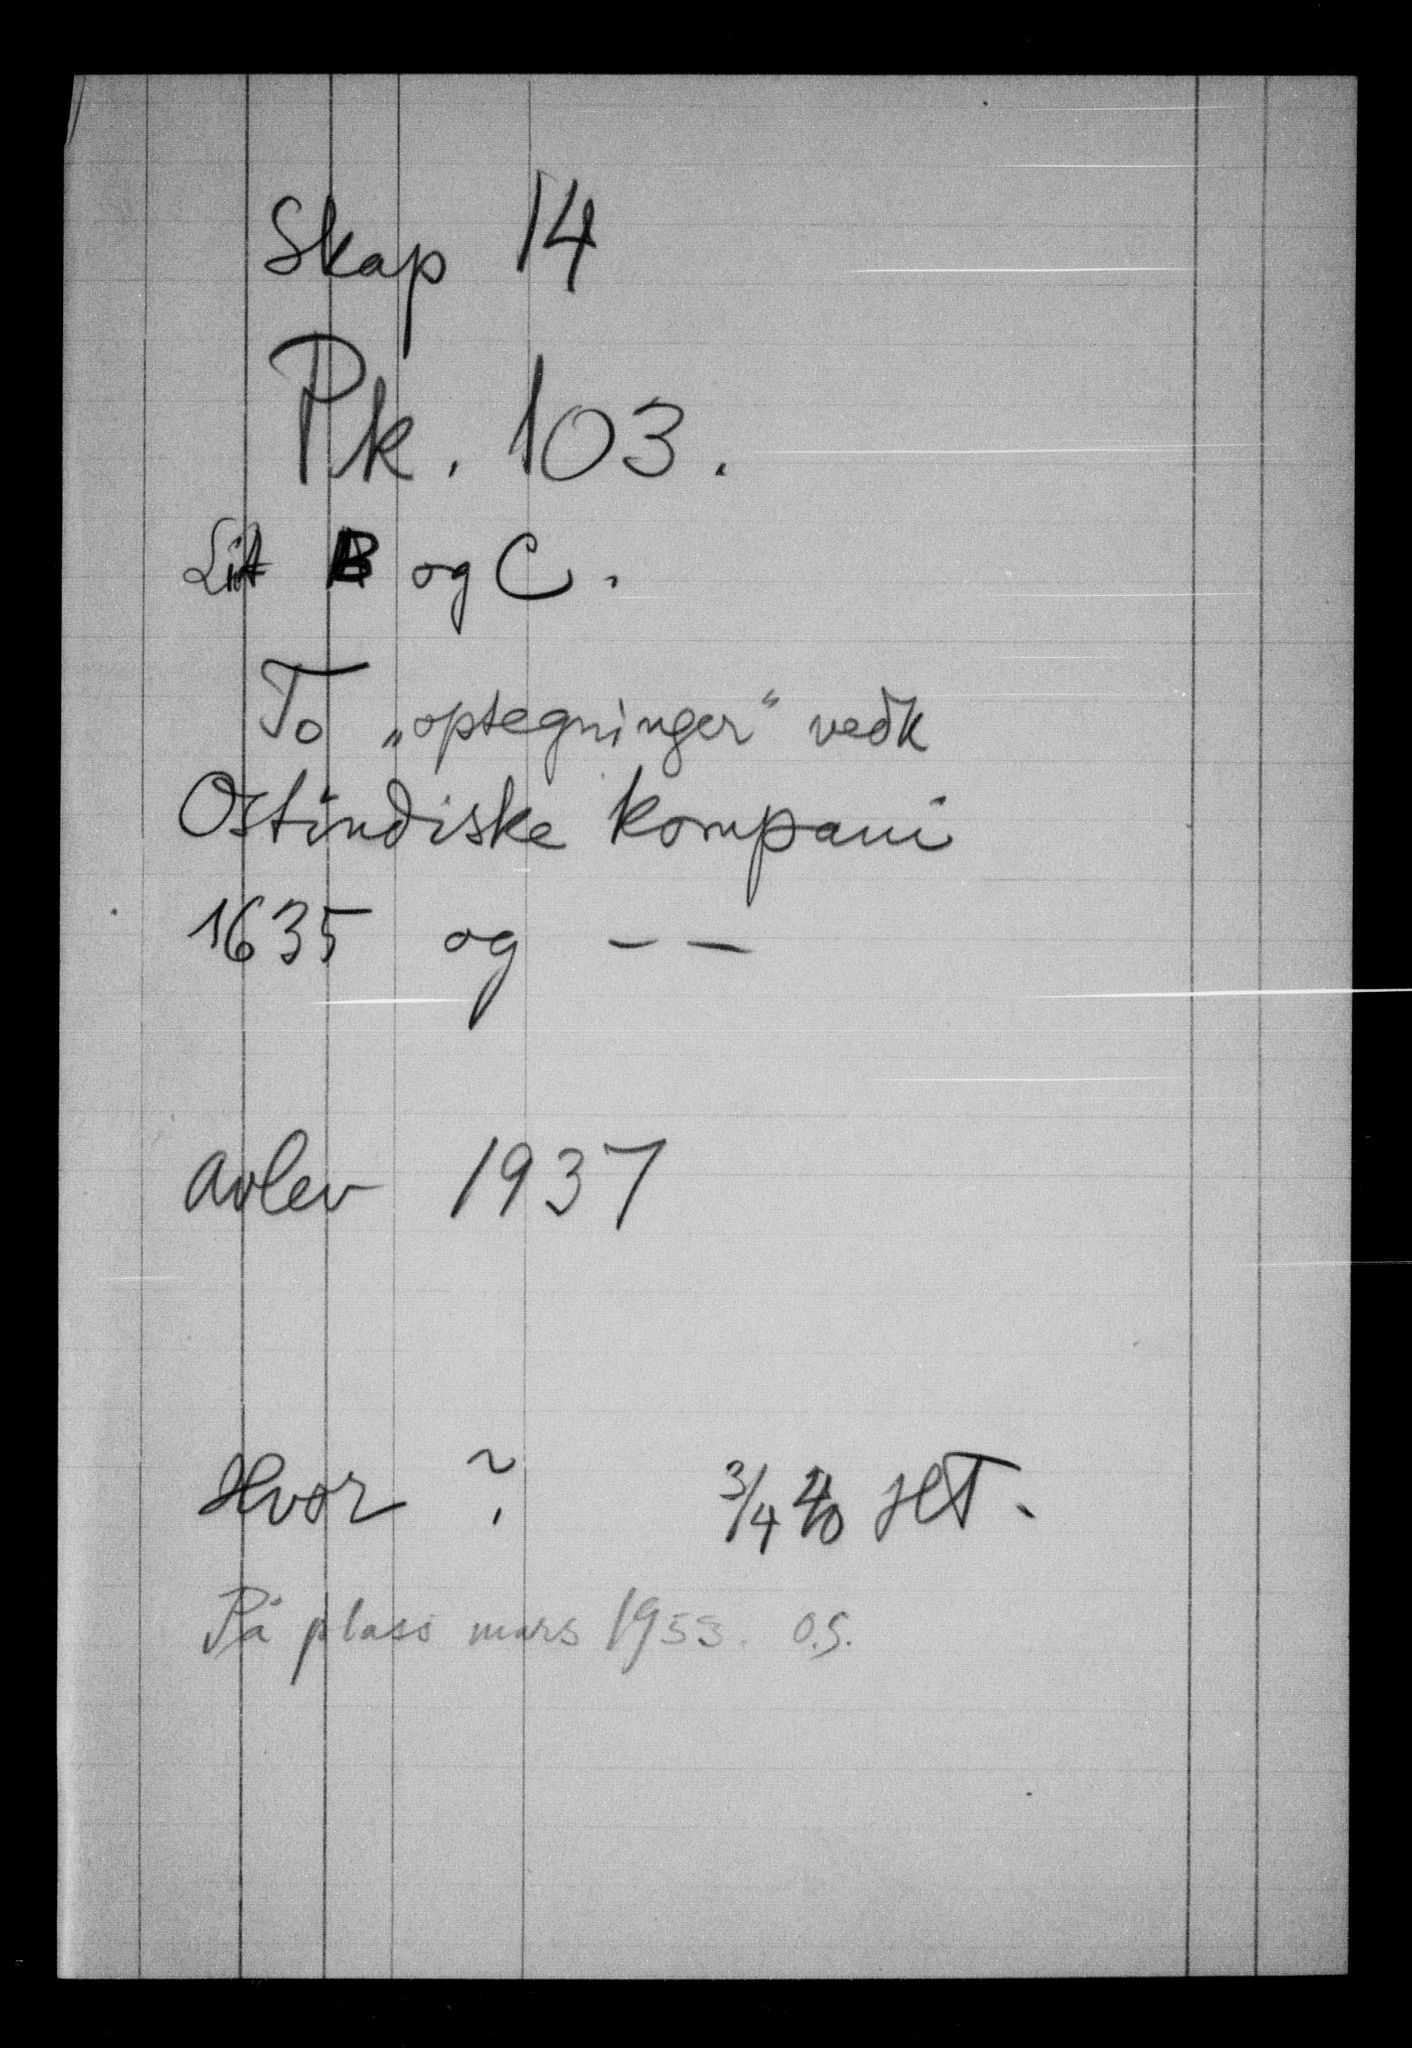 Skap 14
Pk. 103.
Lit B og C.
To „optegninger“ vedk
Ostindiske kompani
1635 og — —
avlev 1937
Hvor ? 3/4 40 HT.
På plass mars 1953. O.S.